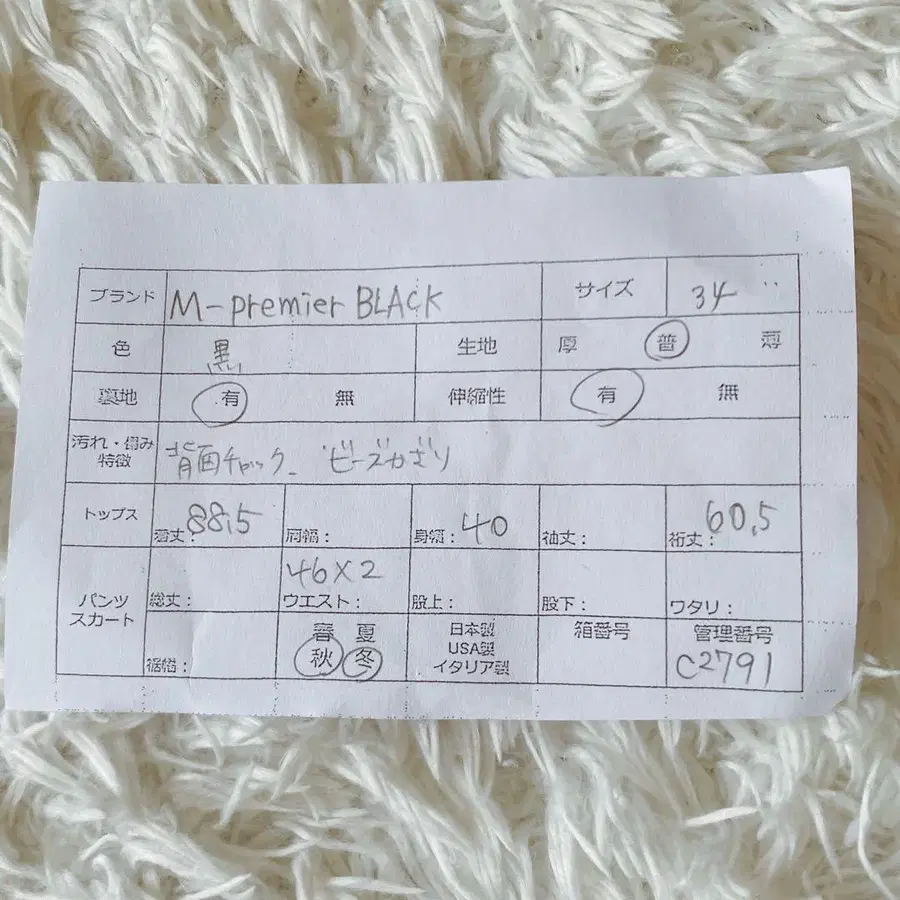 ブランド M-premier BLACK サイズ 34
色 黒 生地 厚 普 薄
裏地 有 無 伸縮性 有 無
汚れ・傷み
特徴 背面チャック ビーズかざり
トップス 着丈: 88.5 肩幅: 身幅: 40 袖丈: 裄丈: 60.5
パンツ
スカート 総丈: ウエスト: 46×2 股上: 股下: ワタリ:
裾幅: 春 夏
秋 冬
日本製
USA製
イタリア製
箱番号
管理番号
C2791